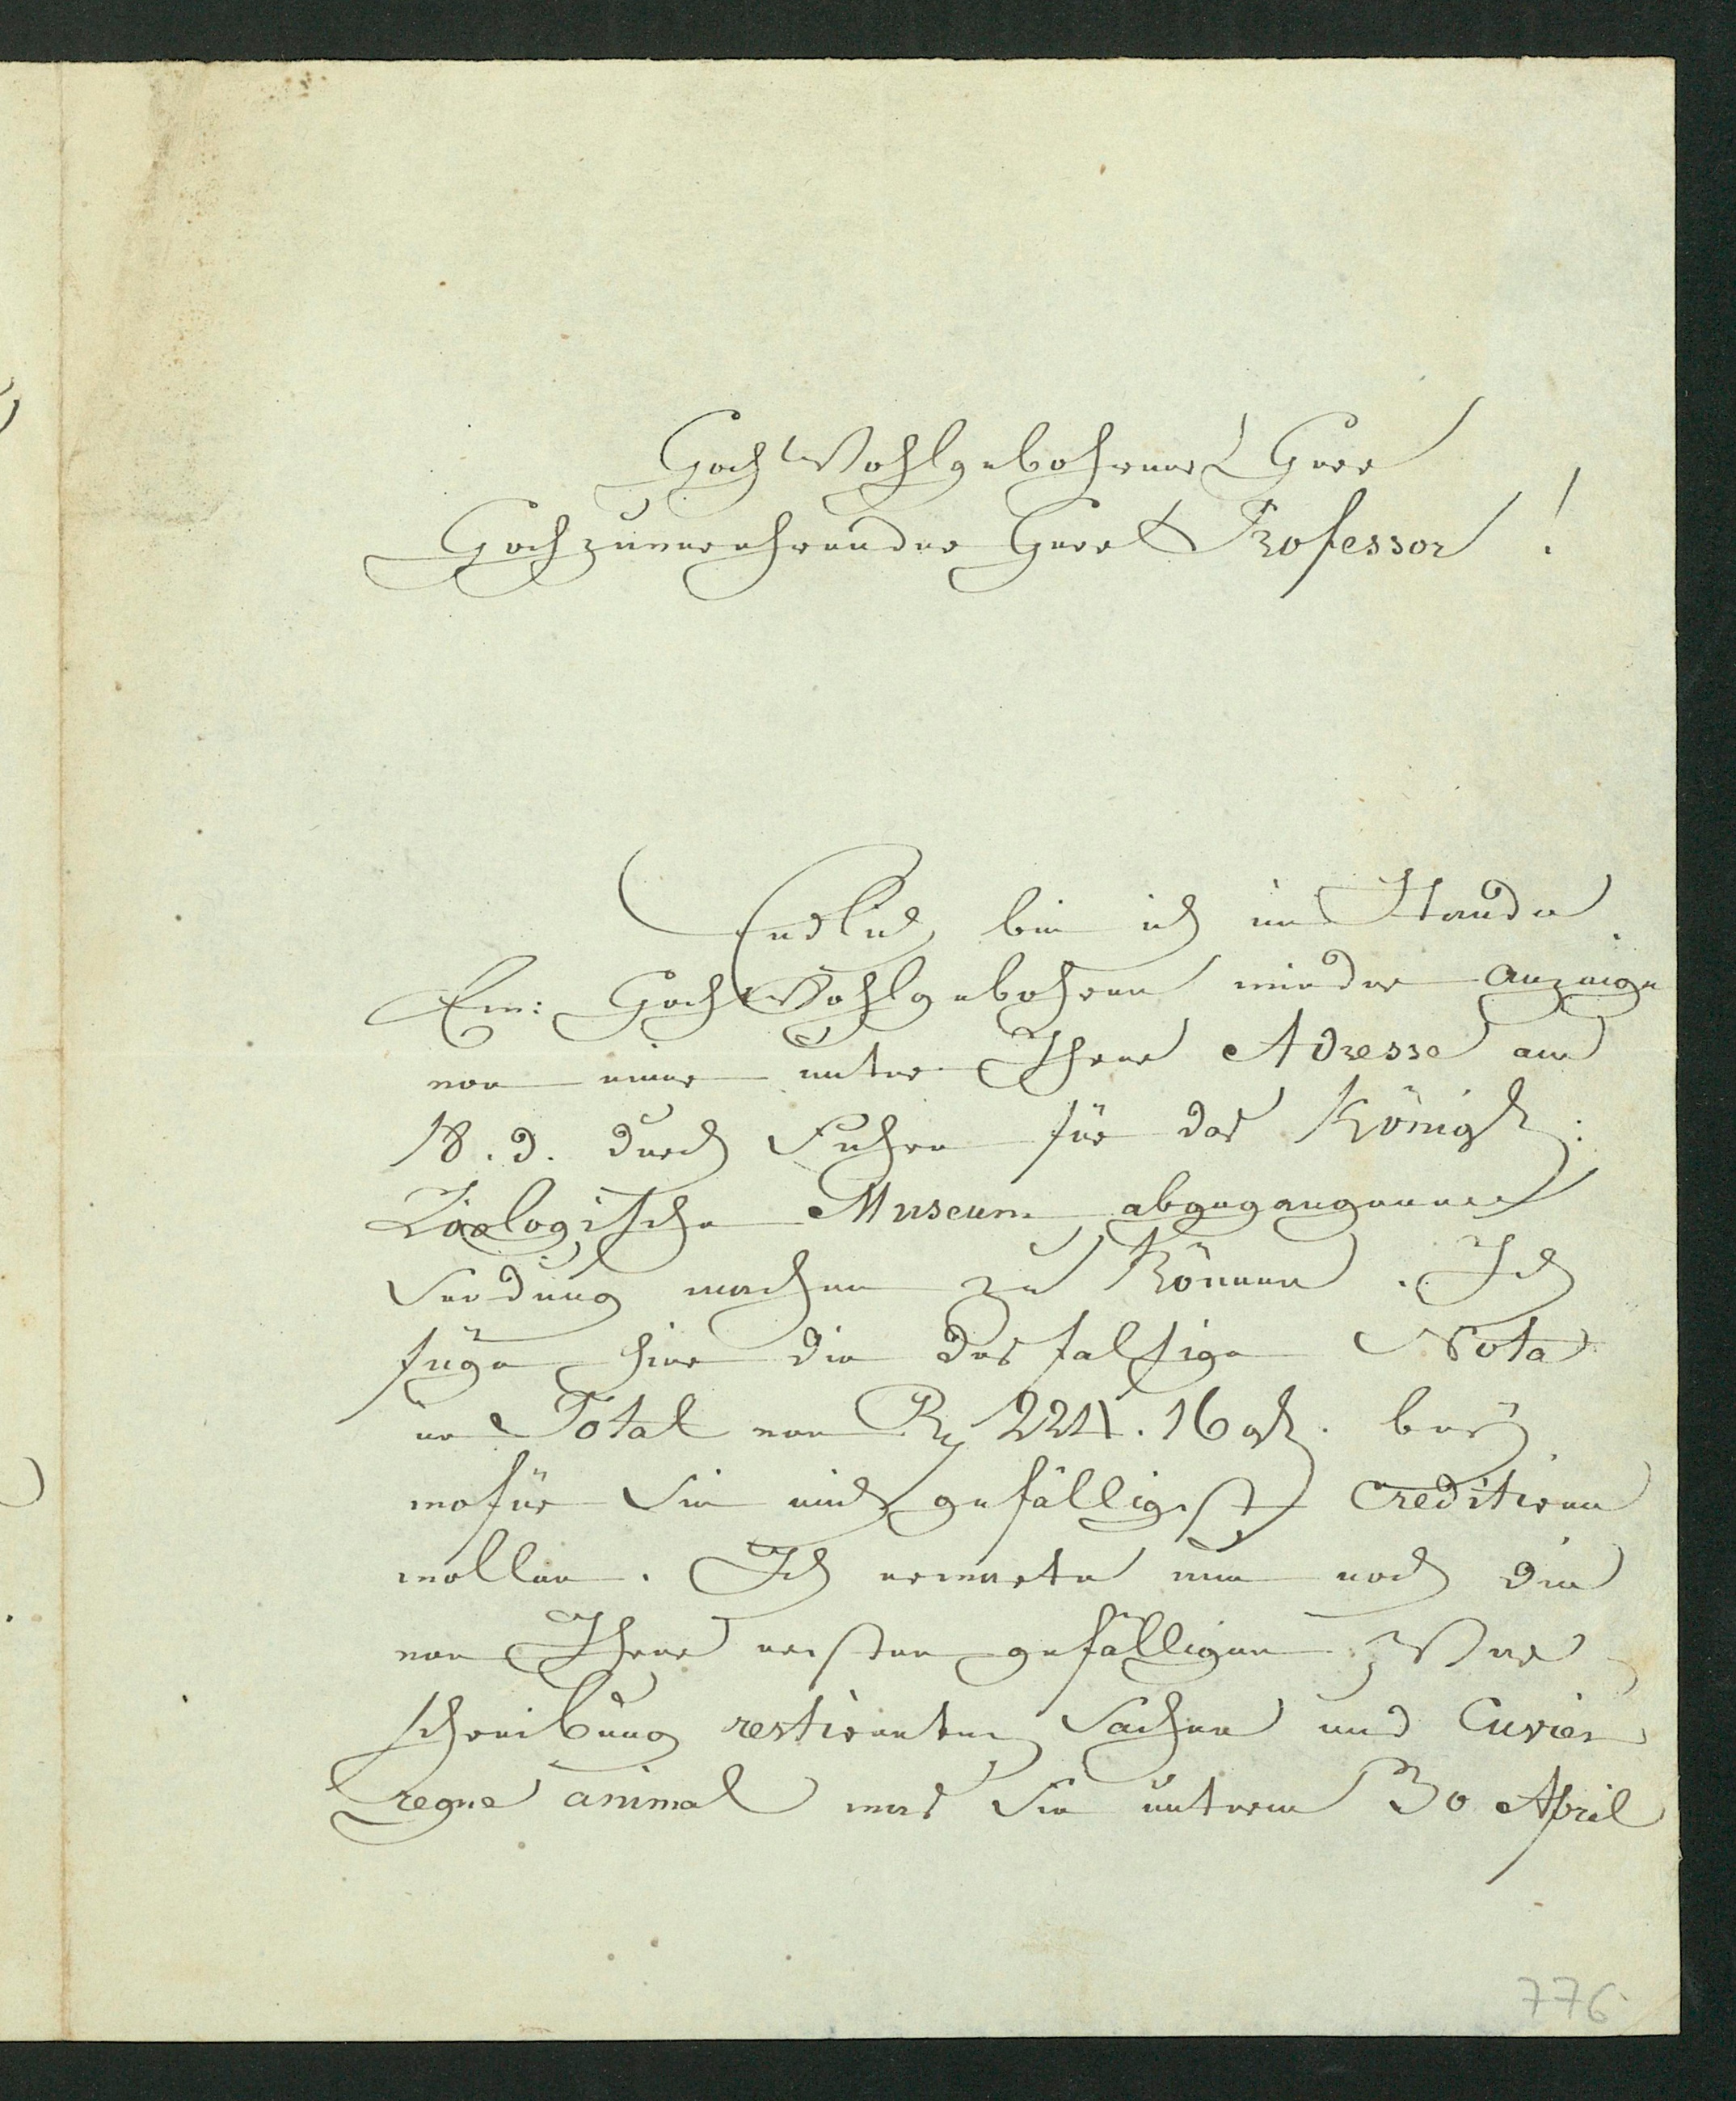 HochWohlgebohrner Herr
Hochzuverehrender Herr Professor!
Endlich bin ich im Stande
Ew: HochWohlgebohren wieder Anzeige
von einer unter Ihrer Adresse am
18. d. durch Fuhre für das Königl:
Zoologische Museum abgegangenen
Sendung machen zu können. Ich
füge hier die desfalsige Nota
im Total von 224. 16 gl. bey
wofür Sie mich gefälligst creditiren
wollen. Ich erwarte nun noch die
von Ihrer ersten gefälligen Ver
schreibung restirenten Sachen und Cuvier
regne animal was Sie unterm 30 April
776